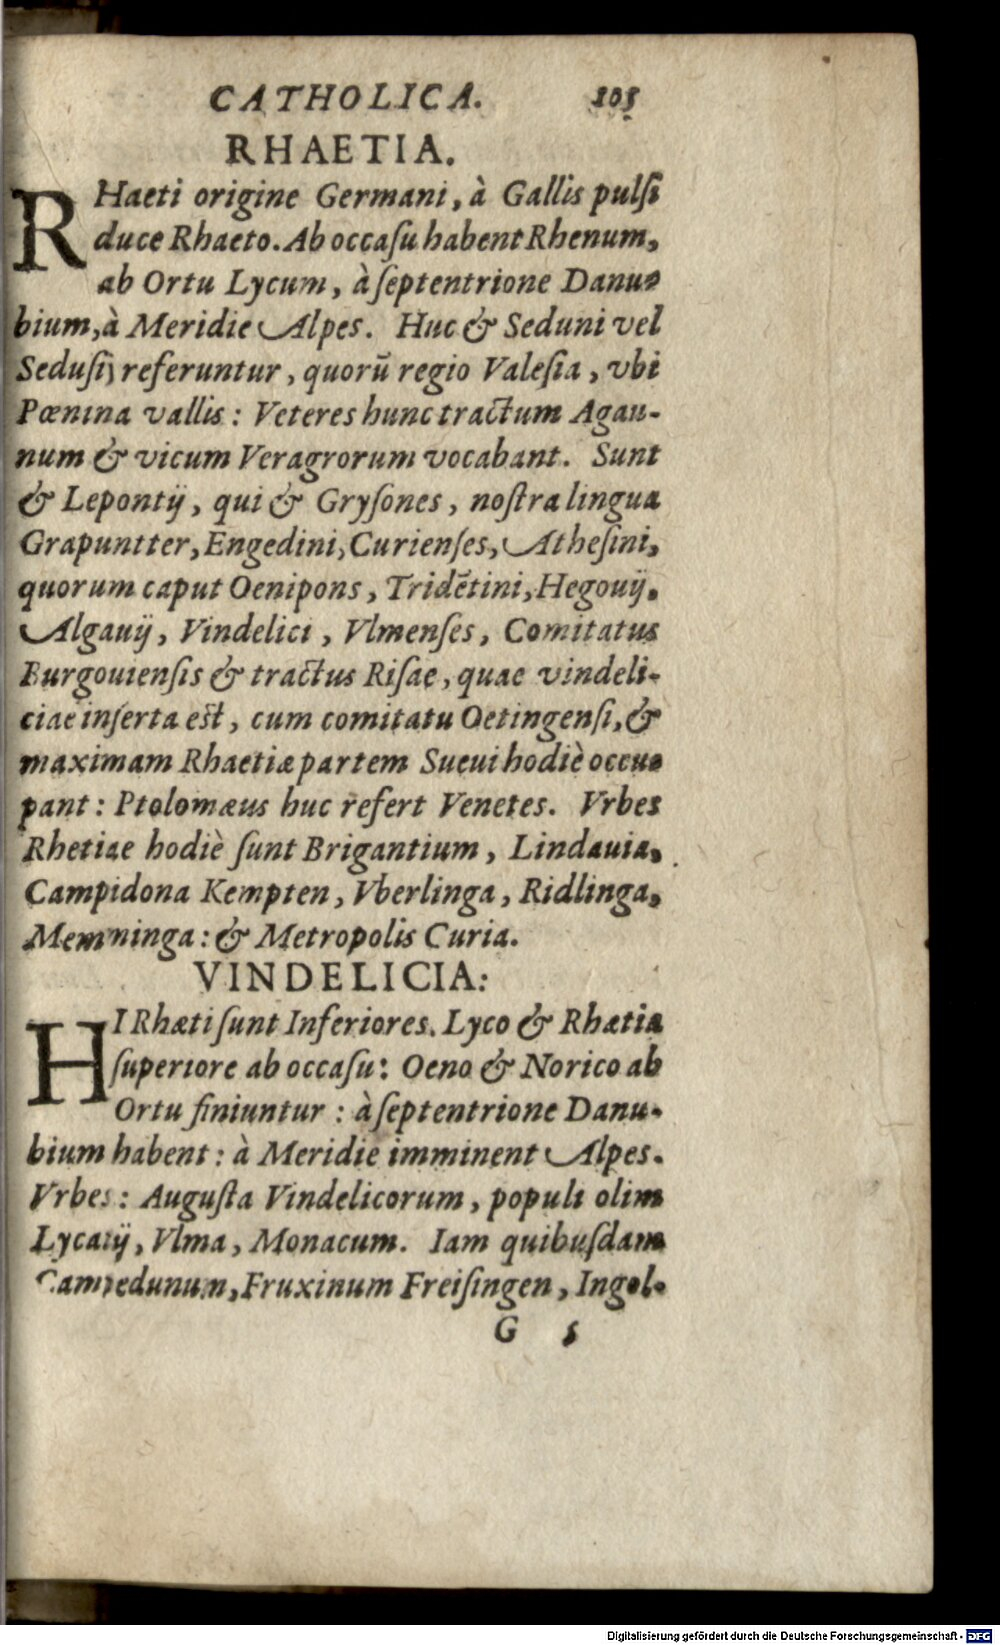 CATHOLICA. 105
RHAETIA.
RHaeti origine Germani, à Gallis pulſi
duce Rhaeto. Ab occaſu habent Rhenum,
ab Ortu Lycum, à ſeptentrione Danu-
bium, à Meridie Alpes. Huc & Seduni vel
Seduſij referuntur, quorū regio Valeſia, vbi
Pœnina vallis: Veteres hunc tractum Agau-
num & vicum Veragrorum vocabant. Sunt
& Lepontij, qui & Gryſones, noſtra lingua
Grapuntter, Engedini, Curienſes, Atheſini,
quorum caput Oenipons, Tridētini, Hegouij,
Algauij, Vindelici, Vlmenſes, Comitatus
Burgouienſis & tractus Riſae, quae vindeli-
ciae inſerta eſt, cum comitatu Oetingenſi, &
maximam Rhaetiæ partem Sueui hodiè occu-
pant: Ptolomæus huc refert Venetes. Vrbes
Rhetiae hodiè ſunt Brigantium, Lindauia,
Campidona Kempten, Vberlinga, Ridlinga,
Memninga: & Metropolis Curia.
VINDELICIA:
HI Rhæti ſunt Inferiores. Lyco & Rhætia
ſuperiore ab occaſu: Oeno & Norico ab
Ortu finiuntur: à ſeptentrione Danu-
bium habent: à Meridie imminent Alpes.
Vrbes: Auguſta Vindelicorum, populi olim
Lycatij, Vlma, Monacum. Iam quibuſdam
Campedunum, Fruxinum Freiſingen, Ingol-
G 5
Digitalisierung gefördert durch die Deutsche Forschungsgemeinschaft - DFG